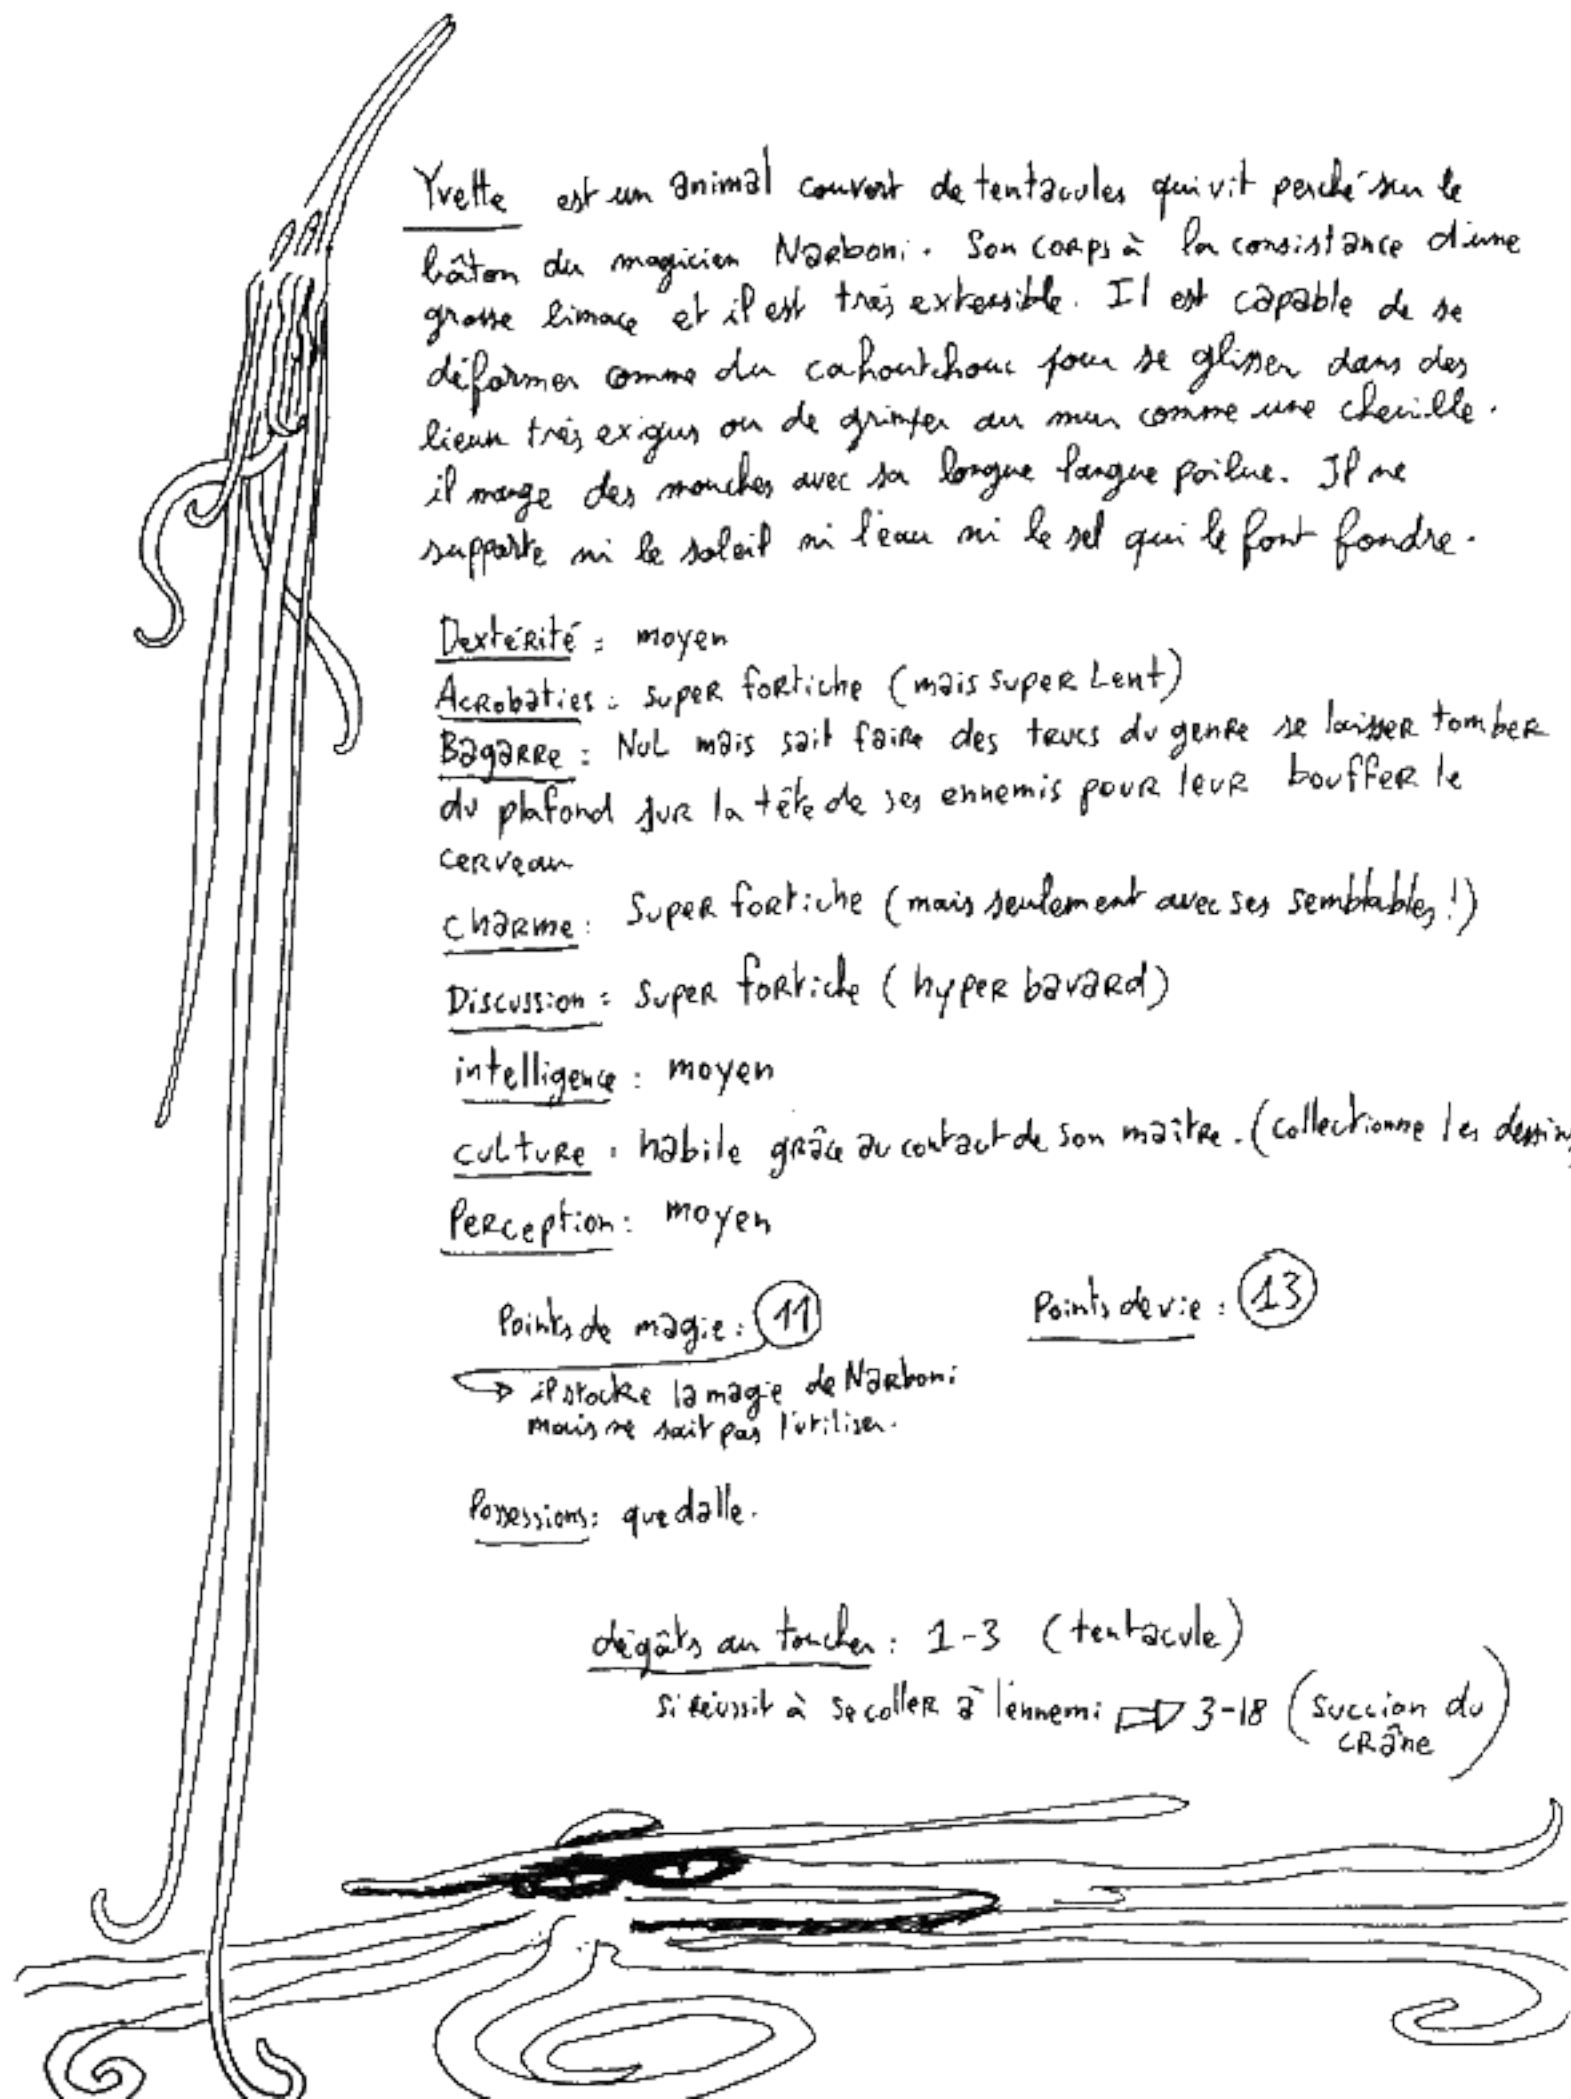 Yvette est un animal couvert de tentacules qui vit perché sur le
bâton du magicien Narboni. Son corps à la consistance d'une
grosse limace et il est très extensible. Il est capable de se
déformer comme du cahoutchouc pour se glisser dans des
lieux très exigus ou de grimper au mur comme une chenille.
il mange des mouches avec sa longue langue poilue. Il ne
supporte ni le soleil ni l'eau ni le sel qui le font fondre.
Dextérité : moyen
Acrobaties : super fortiche (mais super Lent)
Bagarre : Nul mais sait faire des trucs du genre se laisser tomber
du plafond sur la tête de ses ennemis pour leur bouffer le
cerveau
charme : Super fortiche (mais seulement avec ses semblables !)
Discussion : Super fortiche (hyper bavard)
intelligence : moyen
culture : habile grâce au contact de son maître. (collectionne les dessins
Perception : moyen
Points de magie : 11 Points de vie : 13
→ il stocke la magie de Narboni
mais ne sait pas l'utiliser.
Possessions : que dalle.
dégâts au toucher : 1-3 (tentacule)
si réussit à se coller à l'ennemi ⇒ 3-18 (succion du
crâne)